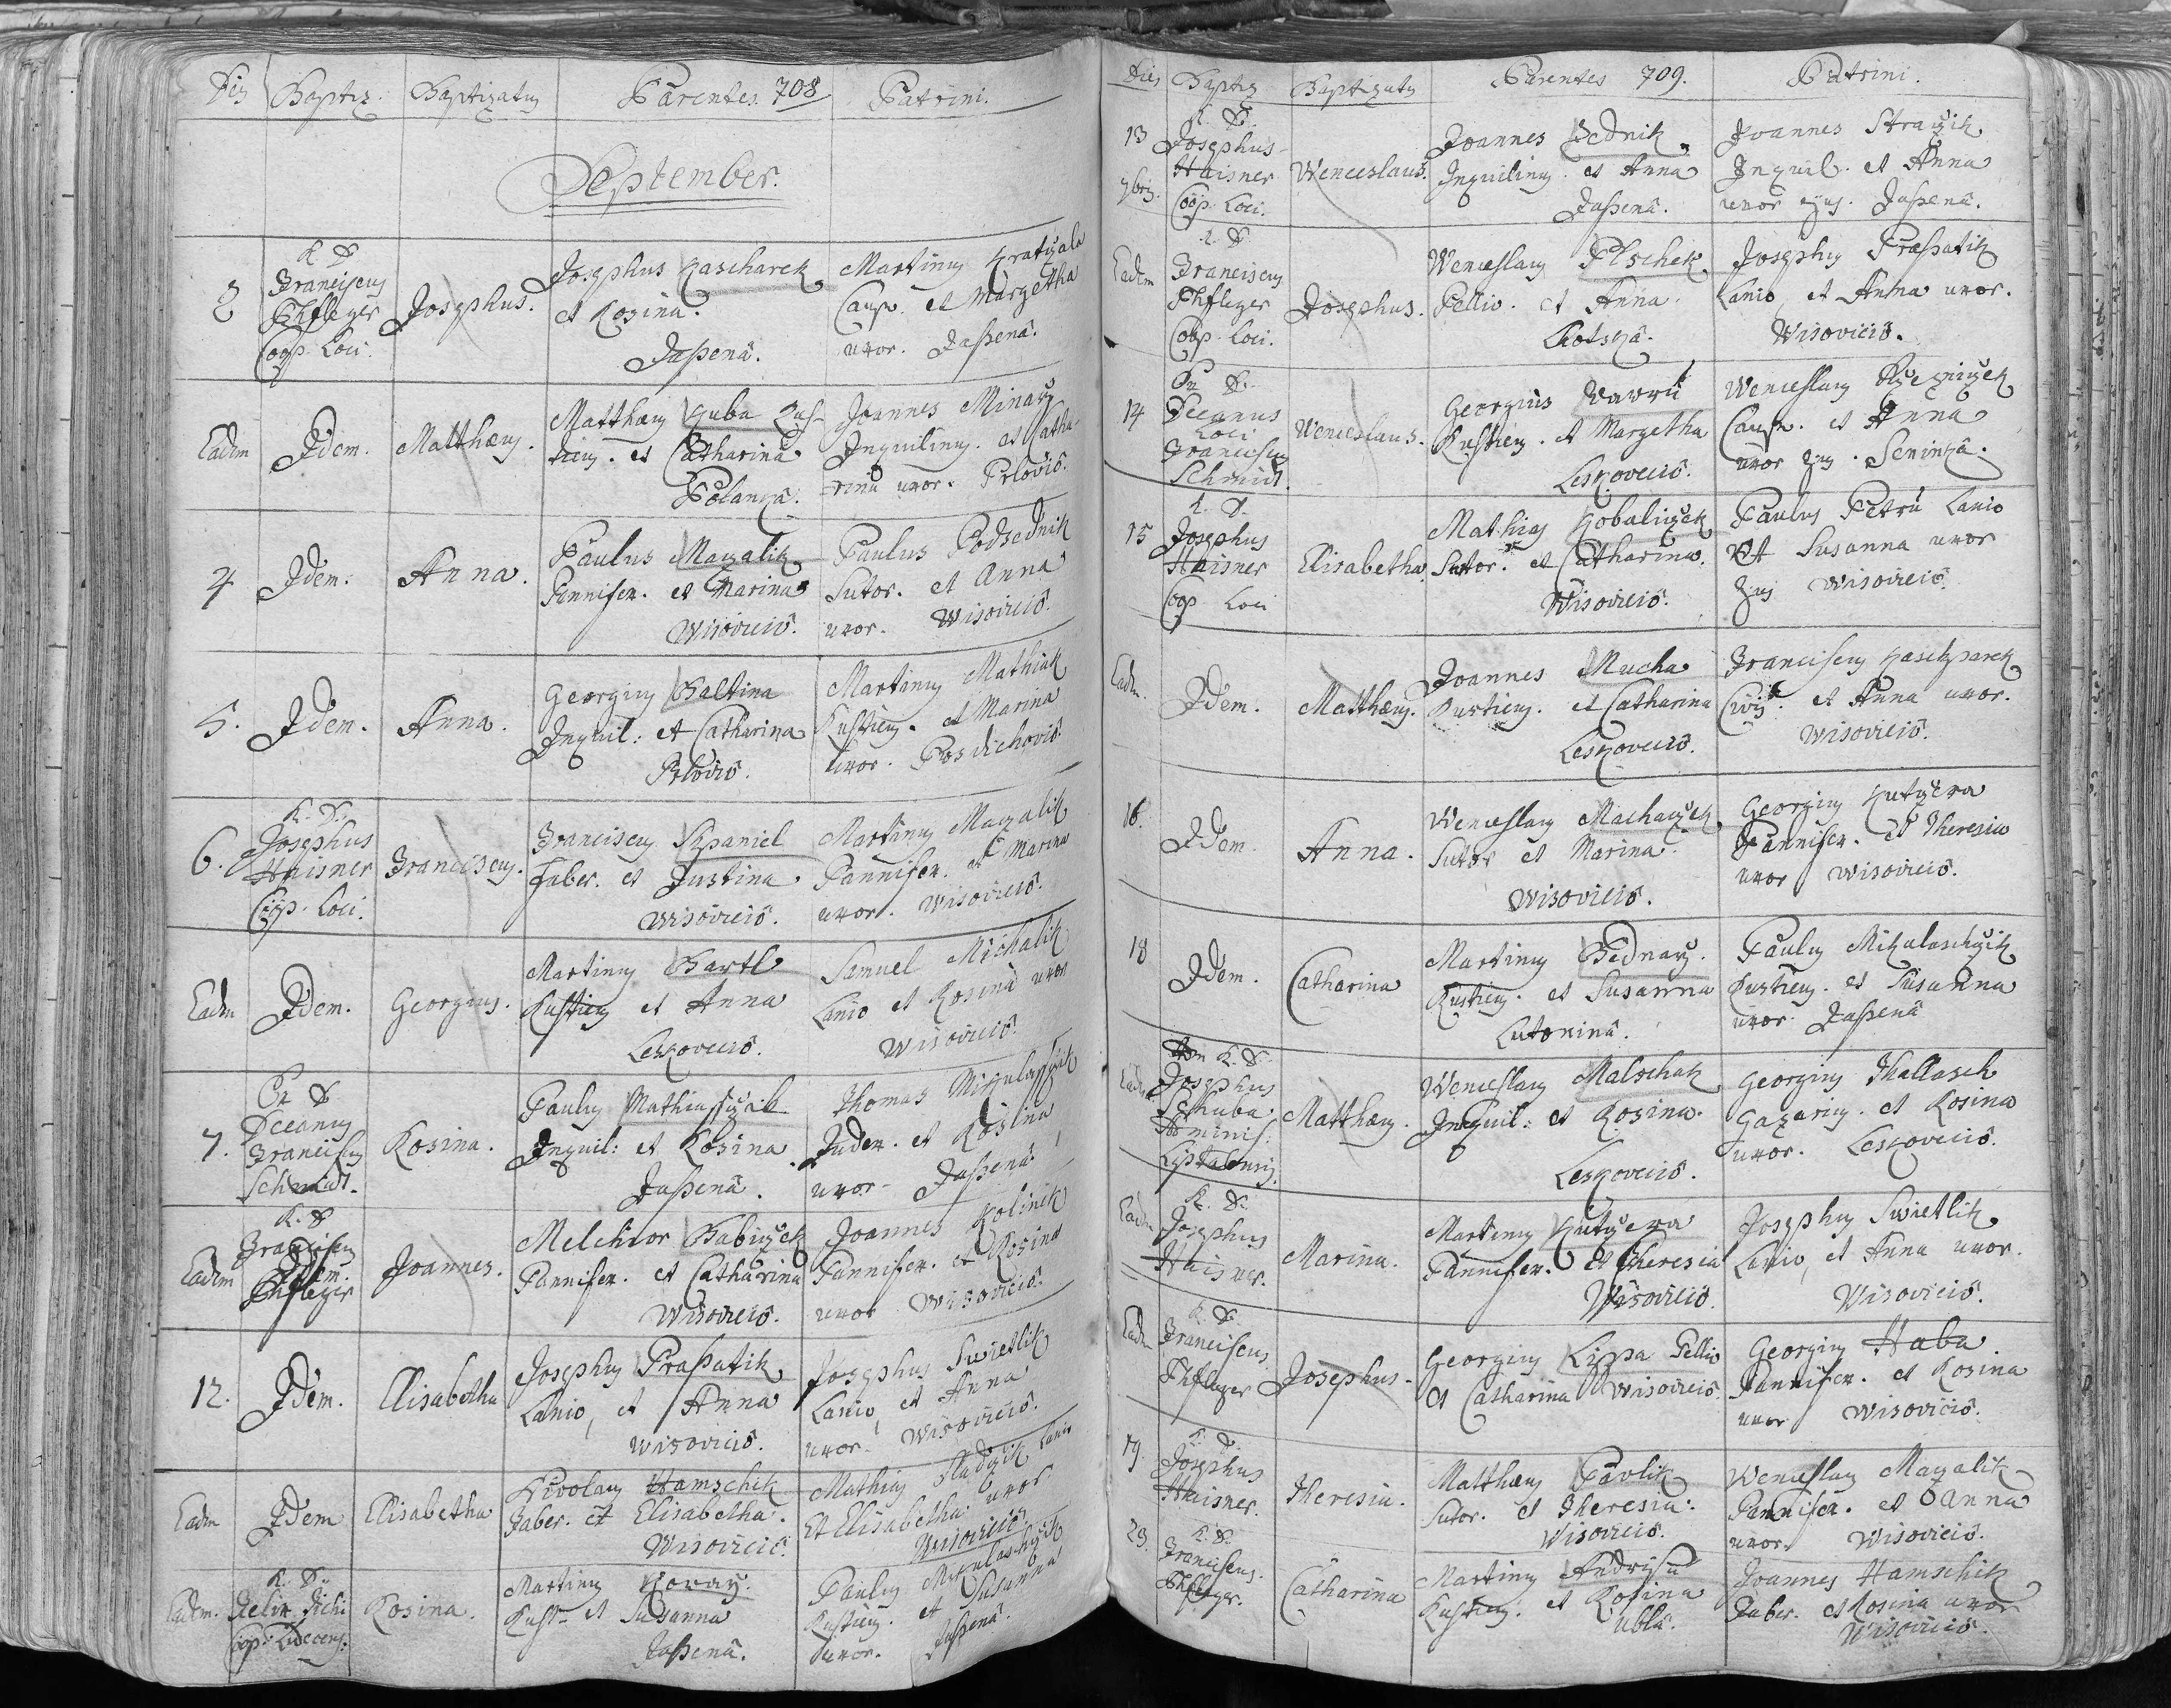 Dies Baptiz. Baptizatus Parentes. 708 Patrini.
September.
2
R. D.
Franciscus
Phfleger
Coop. Loci.
Josephus.
Josephus Kascharek
et Rosina.
Jaßena.
Martinus
Caup. et Margetha
uxor. Jaßena.
Eadem Idem. Matthæus.
Matthæus Kuba Rus-
ticus. et Catharina
Polanka.
Joannes Minarz
Inquilinus. et Catha-
rina uxor. Prlovio.
4 Idem. Anna.
Paulus Mazalik
Pannifex. et Marina
Wisovicio.
Paulus Podsednik
Sutor. et Anna
uxor. Wisovicio.
5. Idem. Anna.
Georgius Baltina
Inquil: et Catharina
Prlovio.
Martinus Mathiak
Rusticus. et Marina
uxor. Posdichovio.
6.
R. D.
Josephus
Haisner
Coop. Loci.
Franciscus.
Franciscus Spaniel
Faber. et Justina
Wisovicio.
Martinus Mazalik
Pannifex. et Marina
uxor. Wisovicio.
Eadem Idem. Georgius.
Martinus Bartl
Rusticus et Anna
Leskovecio.
Samuel Michalik
Lanio et Rosina uxor
Wisovicio.
7.
Pr. D.
Decanus
Franciscus
Schmidt.
Rosina.
Paulus
Inquil: et Rosina
Jaßena.
Thomas
Judex. et Rosina
uxor Jaßena.
Eadem
R. D.
Franciscus
Phfleger
Joannes.
Melchior Babiczek
Pannifex. et Catharina
Wisovicio.
Joannes Kolinek
Pannifex. et Rosina
uxor Wisovicio.
12. Idem. Elisabetha
Josephus Praßatik
Lanio, et Anna
Wisovicio.
Josephus Swietlik
Lanio, et Anna
uxor. Wisovicio.
Eadem Idem Elisabetha
Hamschik
Faber. et Elisabetha.
Wisovicio.
Mathias Lanio
Et Elisabetha uxor
Wisovicio.
Eadem.
R. D.
Rosina.
Martinus Kovarz.
Rust. et Susanna
Jaßena.
Paulus Mikulaschzik
Rusticus. et Susanna
uxor. Jaßena.
Dies Baptiz Baptizatus Parentes 709. Patrini.
13
7bris.
R. D.
Josephus
Haisner
Coop. Loci.
Wenceslaus.
Joannes Sednik
Inquilinus. et Anna
Jaßena.
Joannes
Inquil. et Anna
uxor ejus. Jaßena.
Eadem
R. D.
Franciscus
Phfleger
Coop. Loci.
Josephus.
Wenceslaus Plschek
Pellio. et Anna.
Josephus Praßatik
Lanio, et Anna uxor.
Wisovicio.
14
Pr. D.
Decanus
Loci
Franciscus
Schmidt.
Wenceslaus.
Georgius Vavrú
Rusticus. et Margetha
Leskovecio.
Wenceslaus
Caup. et Anna
uxor ejus. Seninka.
15
R. D.
Josephus
Haisner
Coop Loci
Elisabetha.
Mathias Kobaliczek
Sutor. et Catharina.
Wisovicio.
Paulus Petrú Lanio
et Susanna uxor
ejus Wisovicio.
Eadem. Idem. Matthæus.
Joannes Mucha
Rusticus. et Catharina
Leskovecio.
Franciscus Kaschparek
Civis. et Anna uxor.
Wisovicio.
16. Idem. Anna.
Wenceslaus Machaczek
Sutor et Marina
Wisovicio.
Georgius Kutzera
Pannifex. et Theresia
uxor Wisovicio.
18 Idem. Catharina
Martinus Bednarz.
Rusticus. et Susanna
Lutonina.
Paulus Mikulaschzik
Rusticus. et Susanna
uxor. Jaßena
Eadem
R. D.
Josephus
Schuba.
Matthæus.
Wenceslaus Malschak
Inquil: et Rosina.
Leskovecio.
Georgius Thallasch
Gazarius. et Rosina
uxor. Leskovecio.
Eadem
R. D.
Josephus
Haisner.
Marina.
Martinus Kutzera
Pannifex. et Theresia
Wisovicio.
Josephus Swietlik
Lanio, et Anna uxor.
Wisovicio.
Eadem
R. D.
Franciscus
Phfleger
Josephus.
Georgius Lippa Pellio
et Catharina Wisovicio.
Georgius Haba
Pannifex. et Rosina
uxor Wisovicio.
19.
R. D.
Josephus
Haisner.
Theresia.
Matthæus Pavlik
Sutor. et Theresia.
Wisovicio.
Wenceslaus Mazalik
Pannifex. et Anna
uxor. Wisovicio.
23.
R. D.
Franciscus.
Phfleger.
Catharina
Martinus Andrisú
Rusticus. et Rosina
Ubla.
Joannes Hamschik
Faber. et Rosina uxor
Wisovicio.